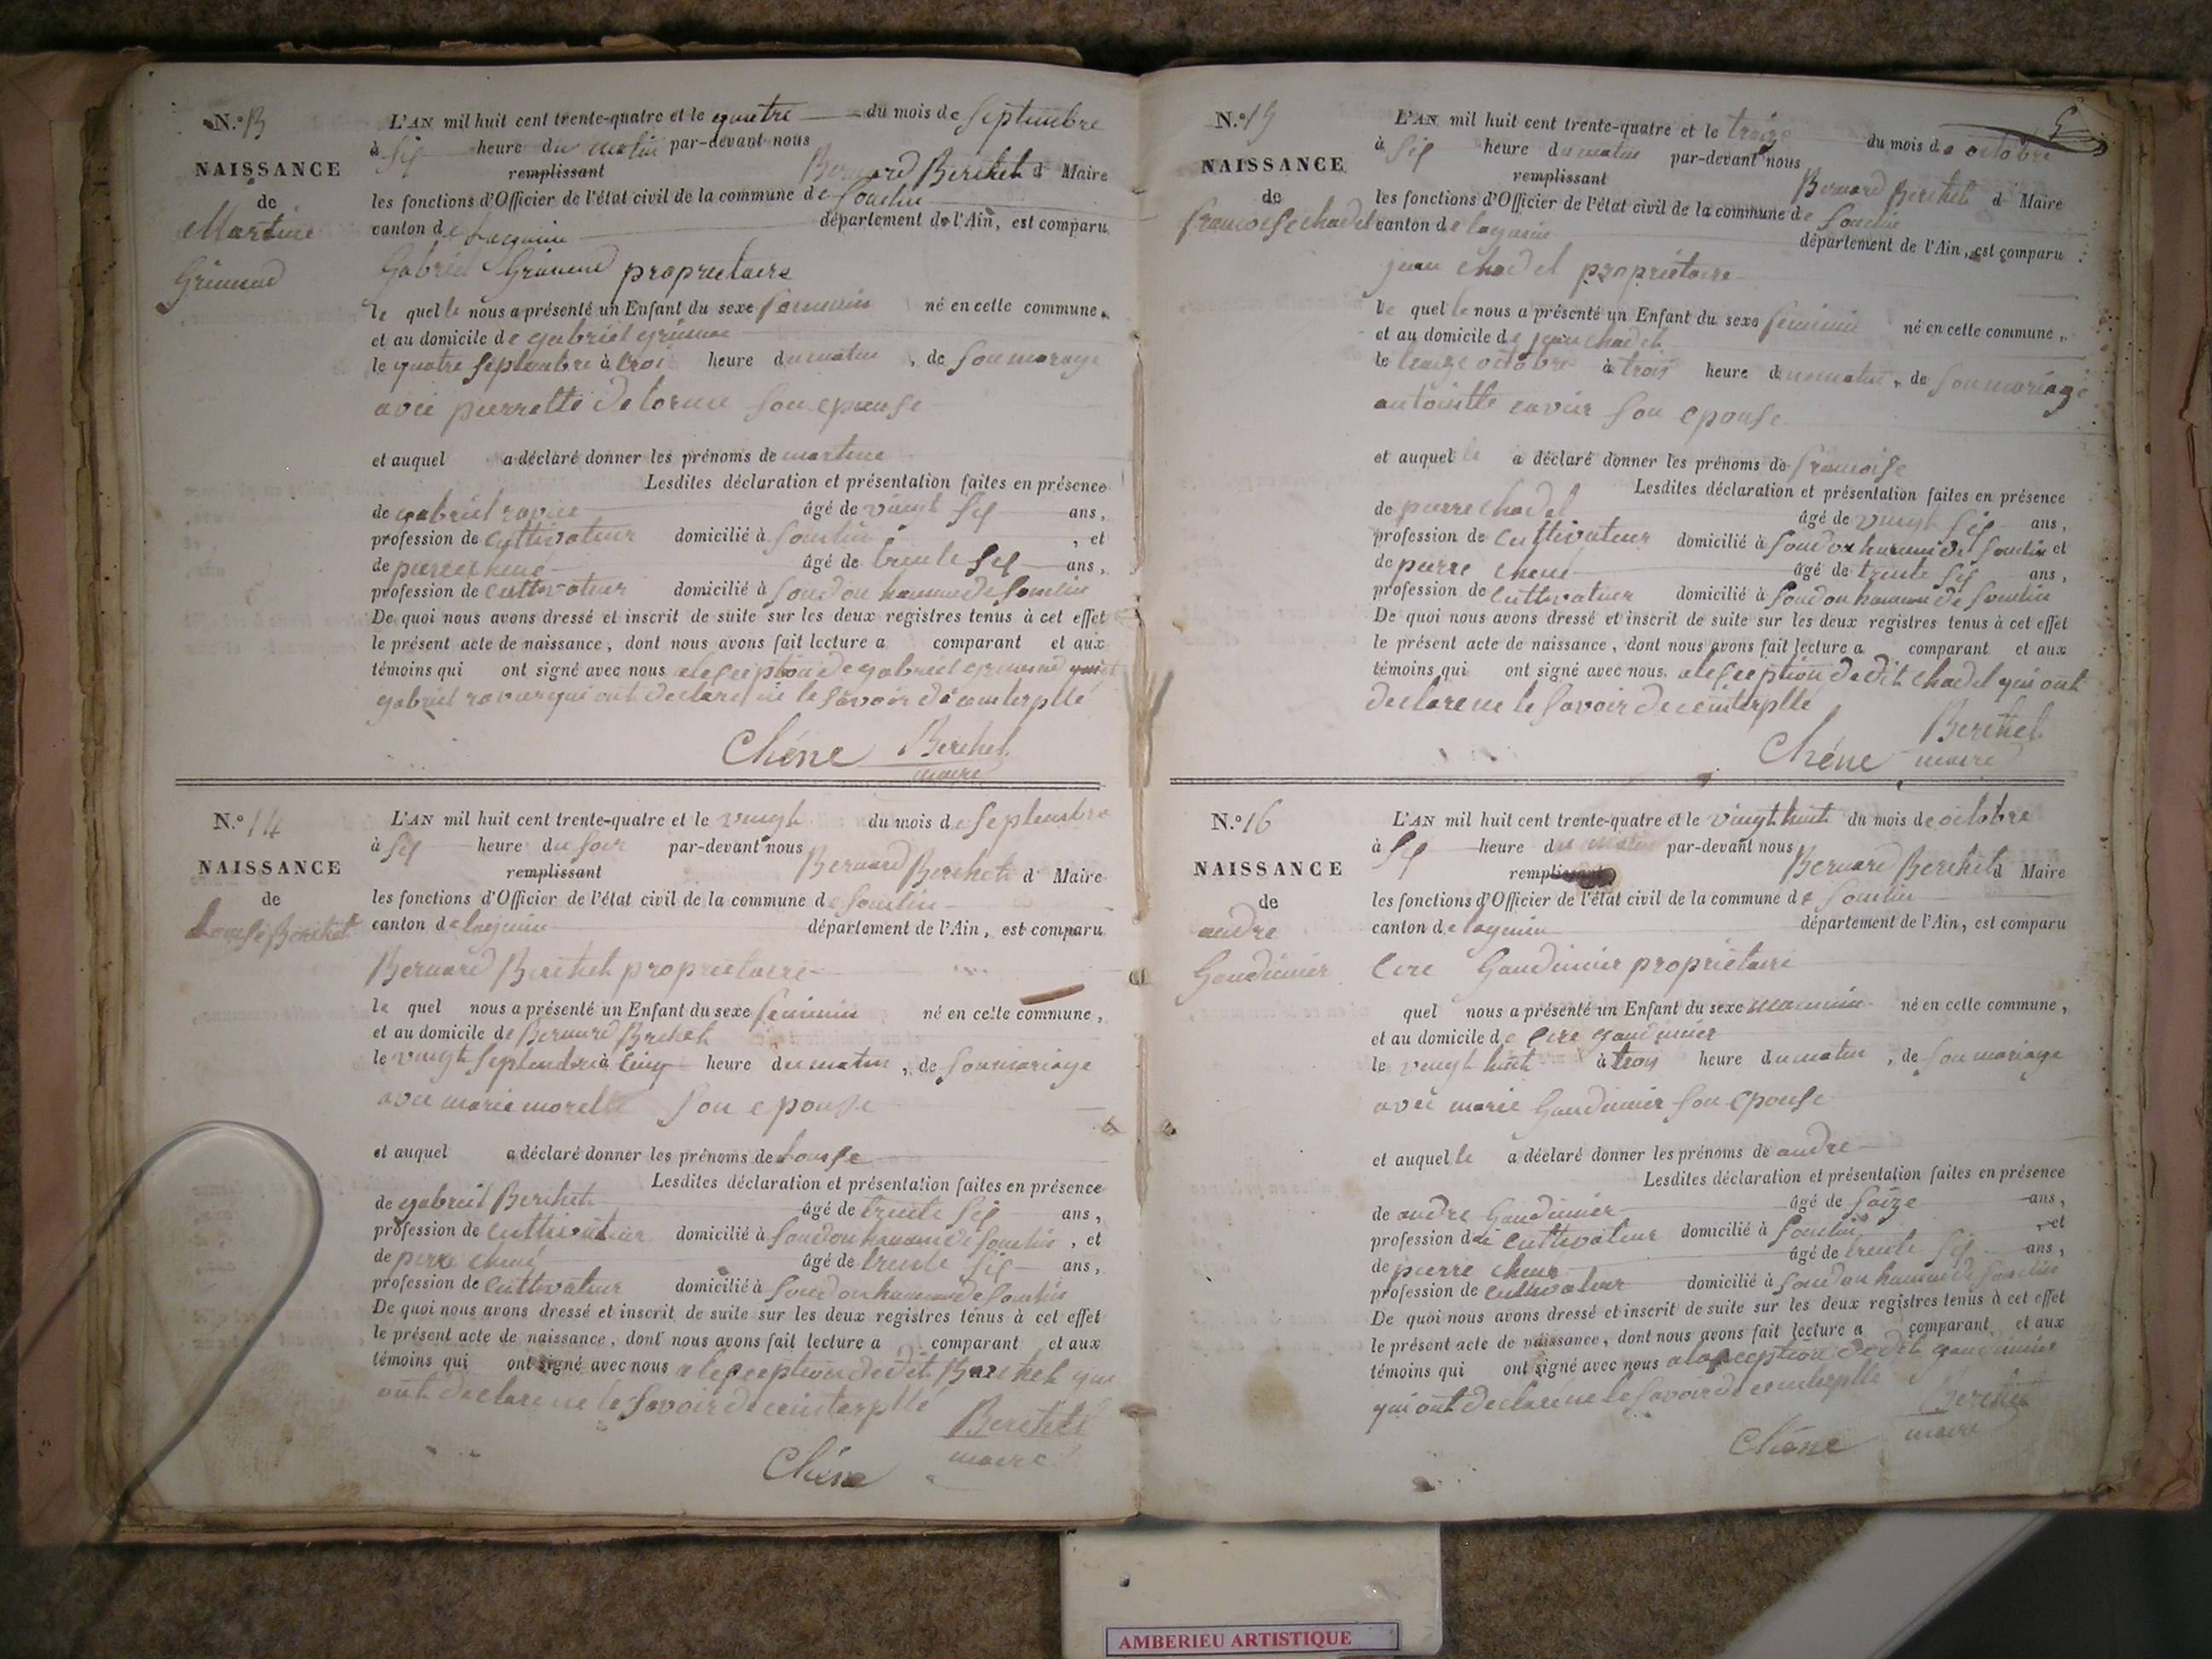 N.º 13
NAISSANCE
de
Martine
Grimaud
L'AN mil huit cent trente-quatre et le quatre du mois de Septembre
à sis heure du matin par-devant nous
remplissant Bernard Berthet d Maire
les fonctions d'Officier de l'état civil de la commune de Souclin
canton de Lagnieu département de l'Ain, est comparu
Gabriel propriétaire
le quel le nous a présenté un Enfant du sexe feminin né en cette commune,
et au domicile de gabriel
le quatre Septembre à troi heure du matin, de son mariage
avec pierrette son epouse
et auquel a déclaré donner les prénoms de martine
Lesdites déclaration et présentation faites en présence
de gabriel âgé de vingt sis ans,
profession de cultivateur domicilié à Souclin, et
de pierre chene âgé de trente sis ans,
profession de cultivateur domicilié à Soudon hameau de Souclin
De quoi nous avons dressé et inscrit de suite sur les deux registres tenus à cet effet
le présent acte de naissance, dont nous avons fait lecture a comparant et aux
témoins qui ont signé avec nous a lesception de gabriel
gabriel qui ont declare ne le savoir de ce interpllé
Chéne Berthet
maire
N.º 14
NAISSANCE
de
Louise Berthet
L'AN mil huit cent trente-quatre et le vingt du mois de Septembre
à sis heure du soir par-devant nous
remplissant Bernard Berthet d Maire
les fonctions d'Officier de l'état civil de la commune de Souclin
canton de lagnieu département de l'Ain, est comparu
Bernard Berthet propriétaire
le quel nous a présenté un Enfant du sexe feminin né en cette commune,
et au domicile de Bernard Brthet
le vingt Septembre à cinq heure du matin, de son mariage
avec marie morelle son epouse
et auquel a déclaré donner les prénoms de Louise
Lesdites déclaration et présentation faites en présence
de gabriel Berthet âgé de trente sis ans,
profession de cultivateur domicilié à Soudon hameau de Souclin, et
de pierre chene âgé de trente sis ans,
profession de cultivateur domicilié à Soudon hameau de Souclin
De quoi nous avons dressé et inscrit de suite sur les deux registres tenus à cet effet
le présent acte de naissance, dont nous avons fait lecture a comparant et aux
témoins qui ont signé avec nous a lesception dedit Berthet qui
ont declare ne le savoir de ce interpllé
Berthet
Chéne maire
5
N.º 15
NAISSANCE
de
francoise chadel
L'AN mil huit cent trente-quatre et le treize du mois de octobre
à sis heure du matin par-devant nous
remplissant Bernard Berthet d Maire
les fonctions d'Officier de l'état civil de la commune de Souclin
canton de lagnieu département de l'Ain, est comparu
jean chadel propriétaire
le quel le nous a présenté un Enfant du sexe feminin né en cette commune,
et au domicile de jean chadel
le treize octobre à trois heure du matin, de son mariage
antoinette son epouse
et auquel le a déclaré donner les prénoms de francoise
Lesdites déclaration et présentation faites en présence
de pierre chadel âgé de vingt sis ans,
profession de cultivateur domicilié à Soudon hameau de Souclin et
de pierre chene âgé de trente sis ans,
profession de cultivateur domicilié à Soudon hameau de Souclin
De quoi nous avons dressé et inscrit de suite sur les deux registres tenus à cet effet
le présent acte de naissance, dont nous avons fait lecture a comparant et aux
témoins qui ont signé avec nous, a lesception dedit chadel qui ont
declare ne le savoir de ce interpllé
Berthet
Chéne maire
N.º 16
NAISSANCE
de
andre
Gaudinier
L'AN mil huit cent trente-quatre et le vingt huit du mois de octobre
à sis heure du matin par-devant nous
remplissant Bernard Berthet d Maire
les fonctions d'Officier de l'état civil de la commune de Souclin
canton de lagnieu département de l'Ain, est comparu
Gaudinier propriétaire
quel nous a présenté un Enfant du sexe né en cette commune,
et au domicile de gaudinier
le vingt huit à trois heure du matin, de son mariage
avec marie Gaudinier son epouse
et auquel le a déclaré donner les prénoms de andre
Lesdites déclaration et présentation faites en présence
de andre Gaudinier âgé de ans,
profession de cultivateur domicilié à Souclin, et
de pierre chene âgé de trente sis ans,
profession de cultivateur domicilié à Soudon hameau de Souclin
De quoi nous avons dressé et inscrit de suite sur les deux registres tenus à cet effet
le présent acte de naissance, dont nous avons fait lecture a comparant et aux
témoins qui ont signé avec nous a lesception dedit gaudinier
qui ont declare ne le savoir de ce interpllé
Berthet
Chéne maire
AMBERIEU ARTISTIQUE